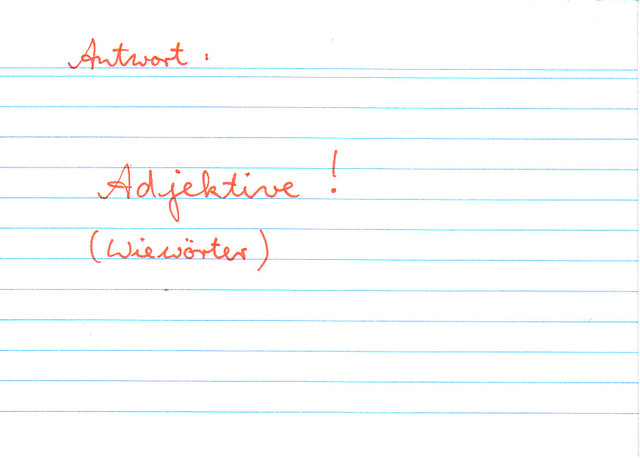 Antwort.
Adjektive!
(Wiewörter)